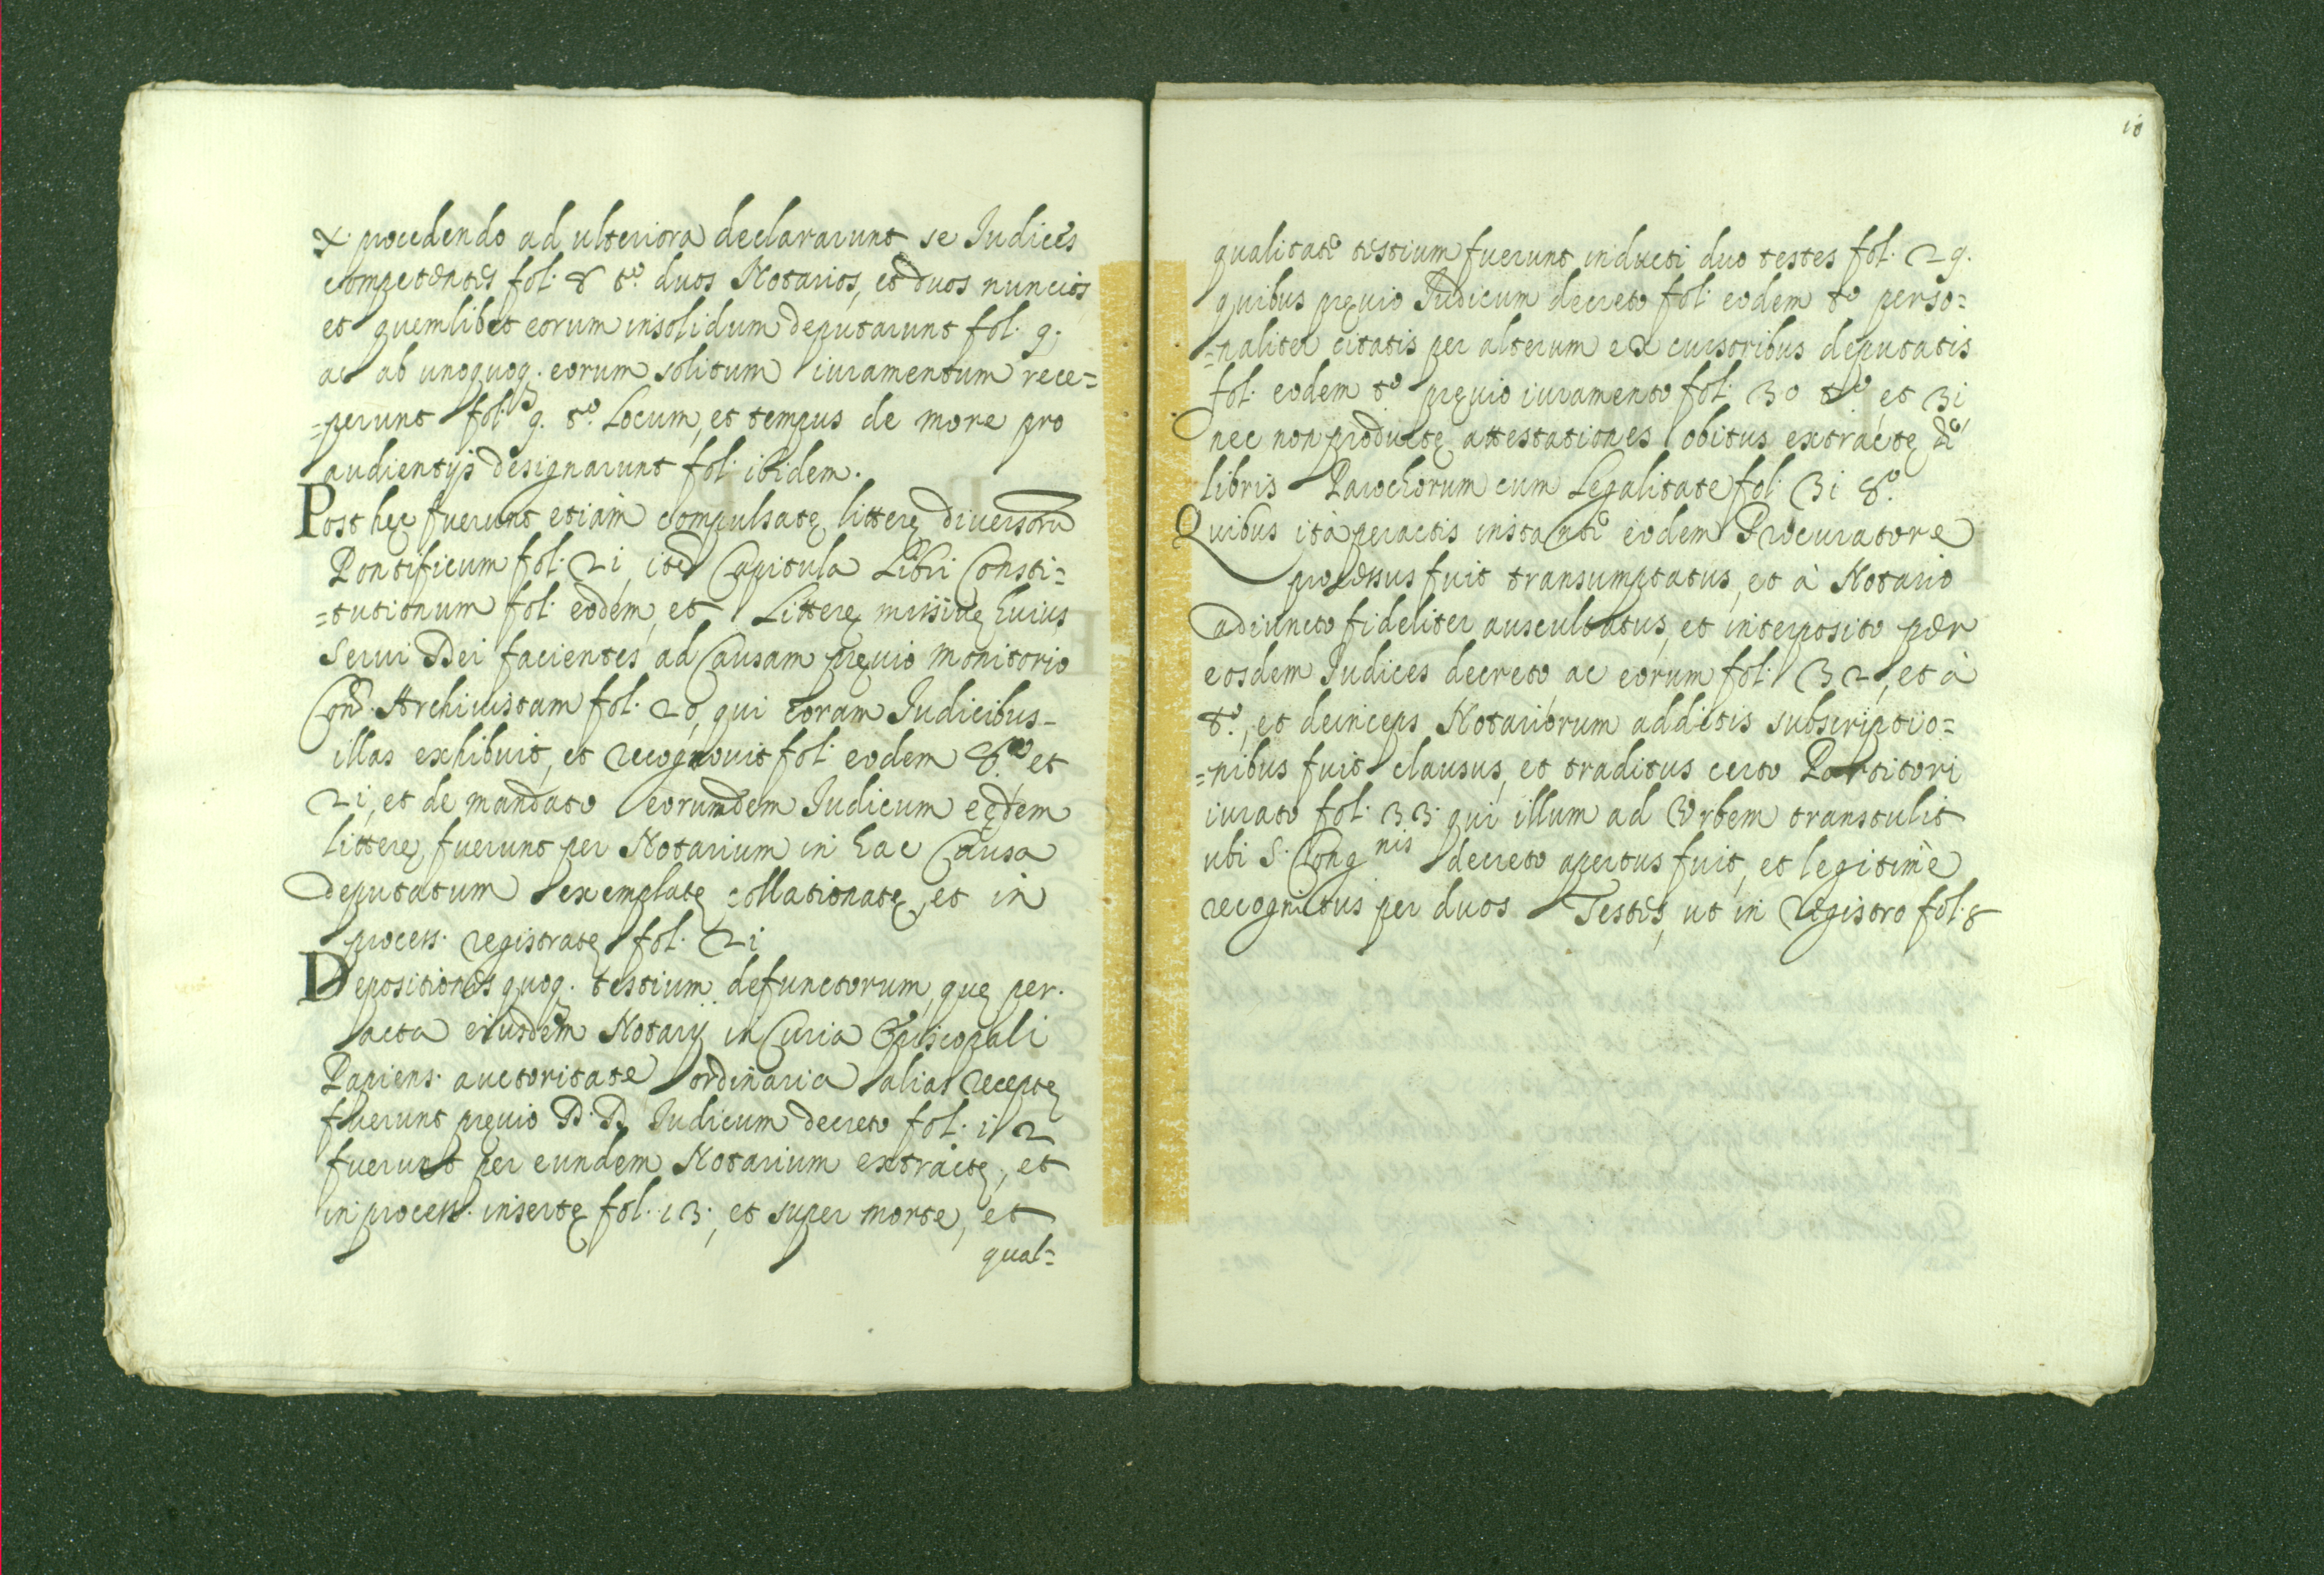 X. procedendo ad ulteriora declararunt se Iudices
competentes fol. 8 to. duos Notarios, et duos nuncios
et quemlibet eorum insolidum deputarunt fol. 9.
ac ab unoquoq. eorum solitum iuramentum rece=
=perunt fol. 9. to. Locum, et tempus de more pro
audientijs designarunt fol. ibidem.
Post hęc fuerunt etiàm compulsatę litterę diversorũ
Pontificum fol. 21, itẽ Capitula Libri Consti=
=tutionum fol. eodem, et Litterę missivę huius
Servi Dei facientes ad Causam pręvio monitorio
Archivistam fol. 20, qui coram Iudicibus
illas exhibuit, et recognovit fol. eodem to. et
21, et de mandato eorumdem Iudicum eędem
litterę fuerunt per Notarium in hac Causa
deputatum exemplatę, collationatę, et in
process. registratę fol. 21
Depositiones quoq. testium defunctorum, quę per
acta eiusdem Notarij in Curia Episcopali
Papiens. auctoritate ordinaria alias receptę
fuerunt pręvio D.D. Iudicum decreto fol. 12
fuerunt per eundem Notarium extractę, et
in process. insertę fol. 13, et super morte, et
qual=
10
qualitate testium fuerunt inducti duo testes fol. 29.
quibus pręvio Iudicum decreto fol. eodem to perso=
=naliter citatis per alterum ex cursoribus deputatis
fol. eodem to pręvio iuramento fol. 30 to et 31
nec non productę attestationes obitus extractę de
libris Parochorum cum Legalitate fol. 31 to.
Quibus ità peractis instante eodem Procuratore
processus fuit transumptatus, et à Notario
adiuncto fideliter auscultatus, et interposito per
eosdem Iudices decreto ac eorum fol. 32, et à
to., et deinceps Notariorum additis subscriptio=
=nibus fuit clausus, et traditus certo Portitori
iurato fol. 33. qui illum ad Urbem transtulit
ubi S. Congnis decreto apertus fuit, et legitimè
recognitus per duos Testes, ut in registro fol. 8